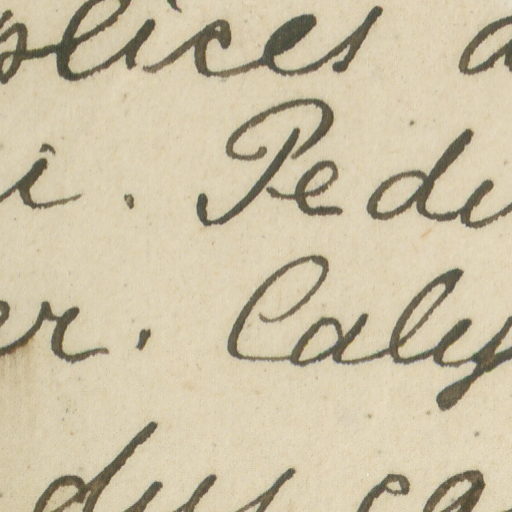 plices a
i. Pedu
er. Caly
dus ca